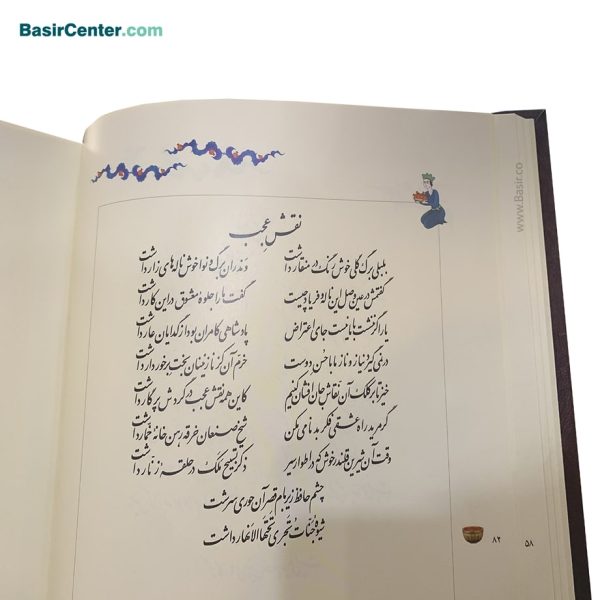 BasirCenter.com
www.Basir.co
نقش عجب
بلبلی برگ گلی خوش رنگ در منقار داشت وندر آن برگ و نوا خوش ناله‌های زار داشت
گفتمش در عین وصل این ناله و فریاد چیست گفت ما را جلوهٔ معشوق در این کار داشت
یار اگر ننشست با ما نیست جای اعتراض پادشاهی کامران بود از گدایان عار داشت
در نمی‌گیرد نیاز و ناز ما با حسن دوست خرم آن کز نازنینان بخت برخوردار داشت
خیز تا بر کلک آن نقاش جان افشان کنیم کاین همه نقش عجب در گردش پرگار داشت
گر مرید راه عشقی فکر بدنامی مکن شیخ صنعان خرقه رهن خانهٔ خمّار داشت
وقت آن شیرین قلندر خوش که در اطوار سیر ذکر تسبیح ملک در حلقهٔ زنّار داشت
چشم حافظ زیر بام قصر آن حوری سرشت
شیوهٔ جَنّاتُ تَجری تَحتَها الاَنهار داشت
۸۲ ۵۸